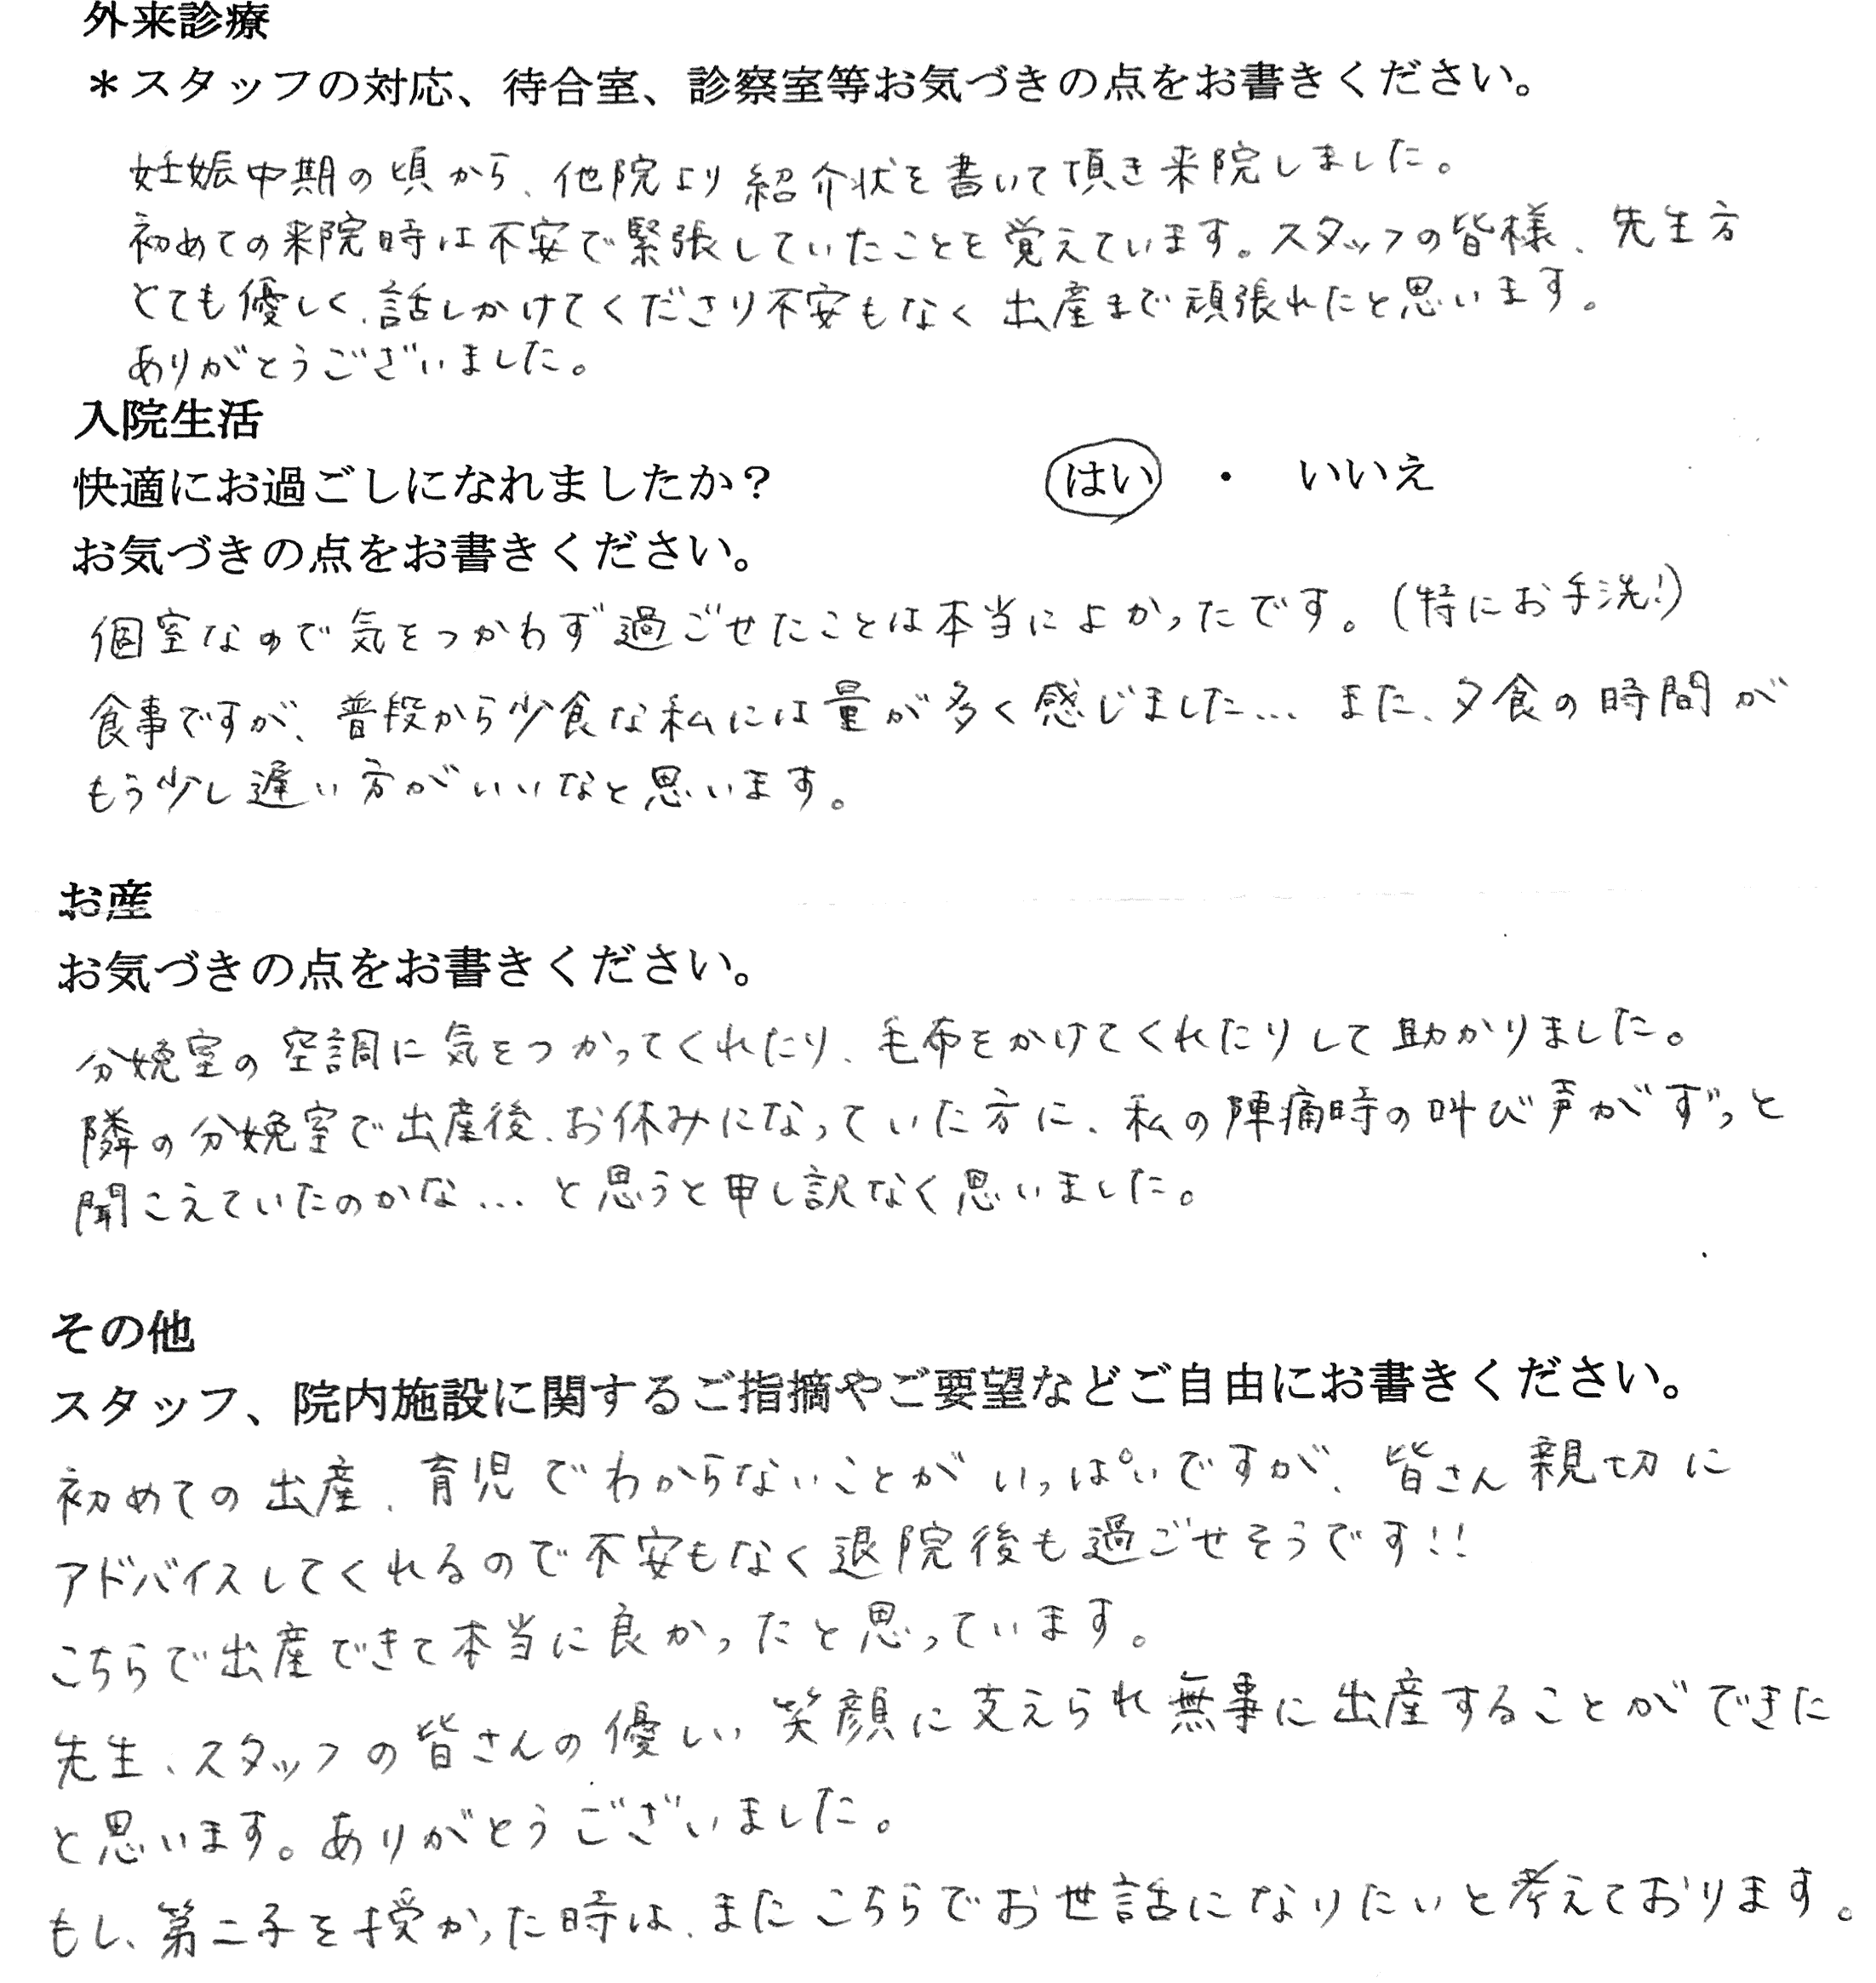 外来診療
＊スタッフの対応、待合室、診察室等お気づきの点をお書きください。
妊娠中期の頃から、他院より紹介状を書いて頂き来院しました。
初めての来院時は不安で緊張していたことを覚えています。スタッフの皆様、先生方
とても優しく、話しかけてくださり不安もなく出産まで頑張れたと思います。
ありがとうございました。
入院生活
快適にお過ごしになれましたか？ はい ・ いいえ
お気づきの点をお書きください。
個室なので気をつかわず過ごせたことは本当によかったです。(特にお手洗!)
食事ですが、普段から少食な私には量が多く感じました… また、夕食の時間が
もう少し遅い方がいいなと思います。
お産
お気づきの点をお書きください。
分娩室の空調に気をつかってくれたり、毛布をかけてくれたりして助かりました。
隣の分娩室で出産後、お休みになっていた方に、私の陣痛時の叫び声がずっと
聞こえていたのかな…と思うと申し訳なく思いました。
その他
スタッフ、院内施設に関するご指摘やご要望などご自由にお書きください。
初めての出産、育児でわからないことがいっぱいですが、皆さん親切に
アドバイスしてくれるので不安もなく退院後も過ごせそうです!!
こちらで出産できて本当に良かったと思っています。
先生、スタッフの皆さんの優しい笑顔に支えられ無事に出産することができた
と思います。ありがとうございました。
もし、第二子を授かった時は、またこちらでお世話になりたいと考えております。